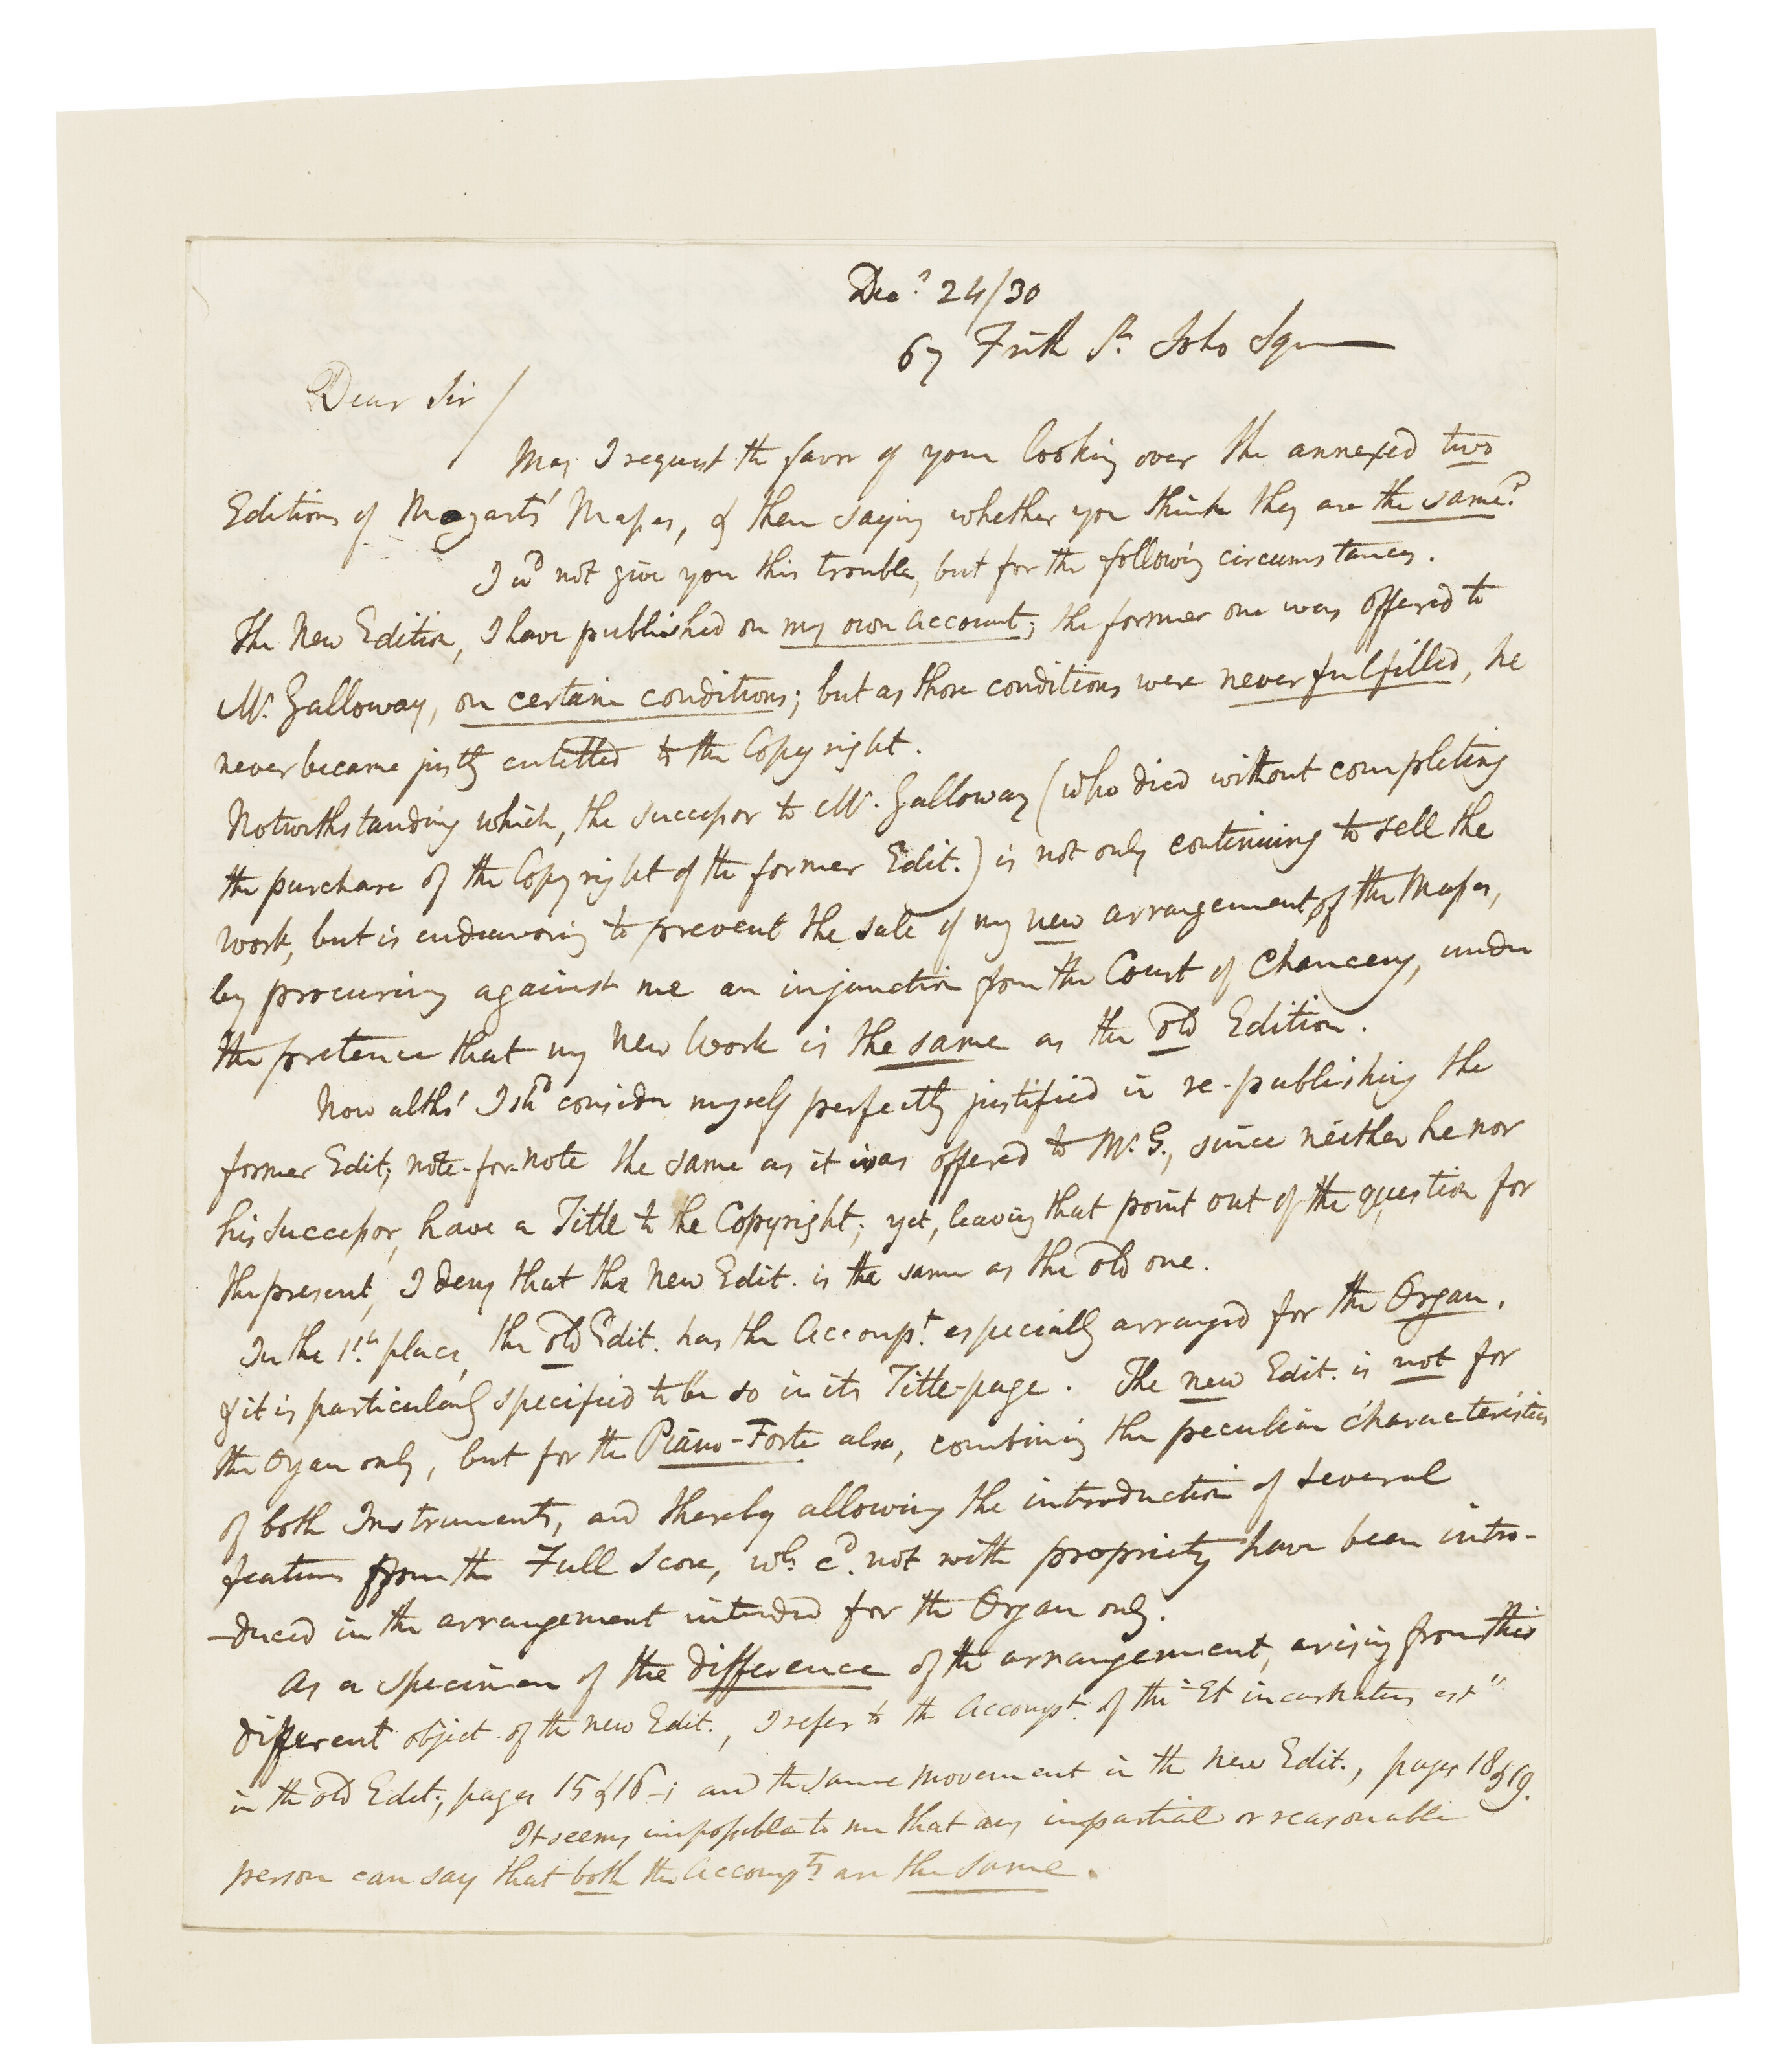 Decr 24/30
67 Frith St. Soho Square
Dear Sir /
May I request the favor of your looking over the annexed two
Editions of Mozart's Masses, & then saying whether you think they are the same?
I wd not give you this trouble, but for the following circumstances.
The New Edition, I have published on my own account; the former one was offered to
Mr. Galloway, on certain conditions; but as those conditions were never fulfilled, he
never became justly entitled to the Copyright.
Notwithstanding which, the successor to Mr. Galloway (who died without completing
the purchase of the Copyright of the former Edit.) is not only continuing to sell the
work, but is endeavoring to prevent the sale of my new arrangement of the Masses,
by procuring against me an injunction from the Court of Chancery, under
the pretence that my New Work is the same as the old Edition.
Now altho' I shd consider myself perfectly justified in re-publishing the
former Edit; note-for-note the same as it was offered to Mr. G., since neither he nor
his successor, have a Title to the Copyright; yet, leaving that point out of the question for
the present, I deny that the New Edit. is the same as the old one.
In the 1st place, the old Edit. has the Accompt. especially arranged for the Organ,
& it is particularly specified to be so in its Title-page. The new Edit. is not for
the Organ only, but for the Piano-Forte also, combining the peculiar characteristics
of both Instruments, and thereby allowing the introduction of several
features from the Full Score, wh. cd. not with propriety have been intro-
-duced in the arrangement intended for the Organ only.
As a specimen of the difference of the arrangement, arising from this
different object of the new Edit., I refer to the Accompt. of the "Et incarnatus est"
in the old Edit:, pages 15 & 16-; and the same movement in the New Edit., pages 18 & 19.
It seems impossible to me that any impartial or reasonable
person can say that both the Accompts are the same.